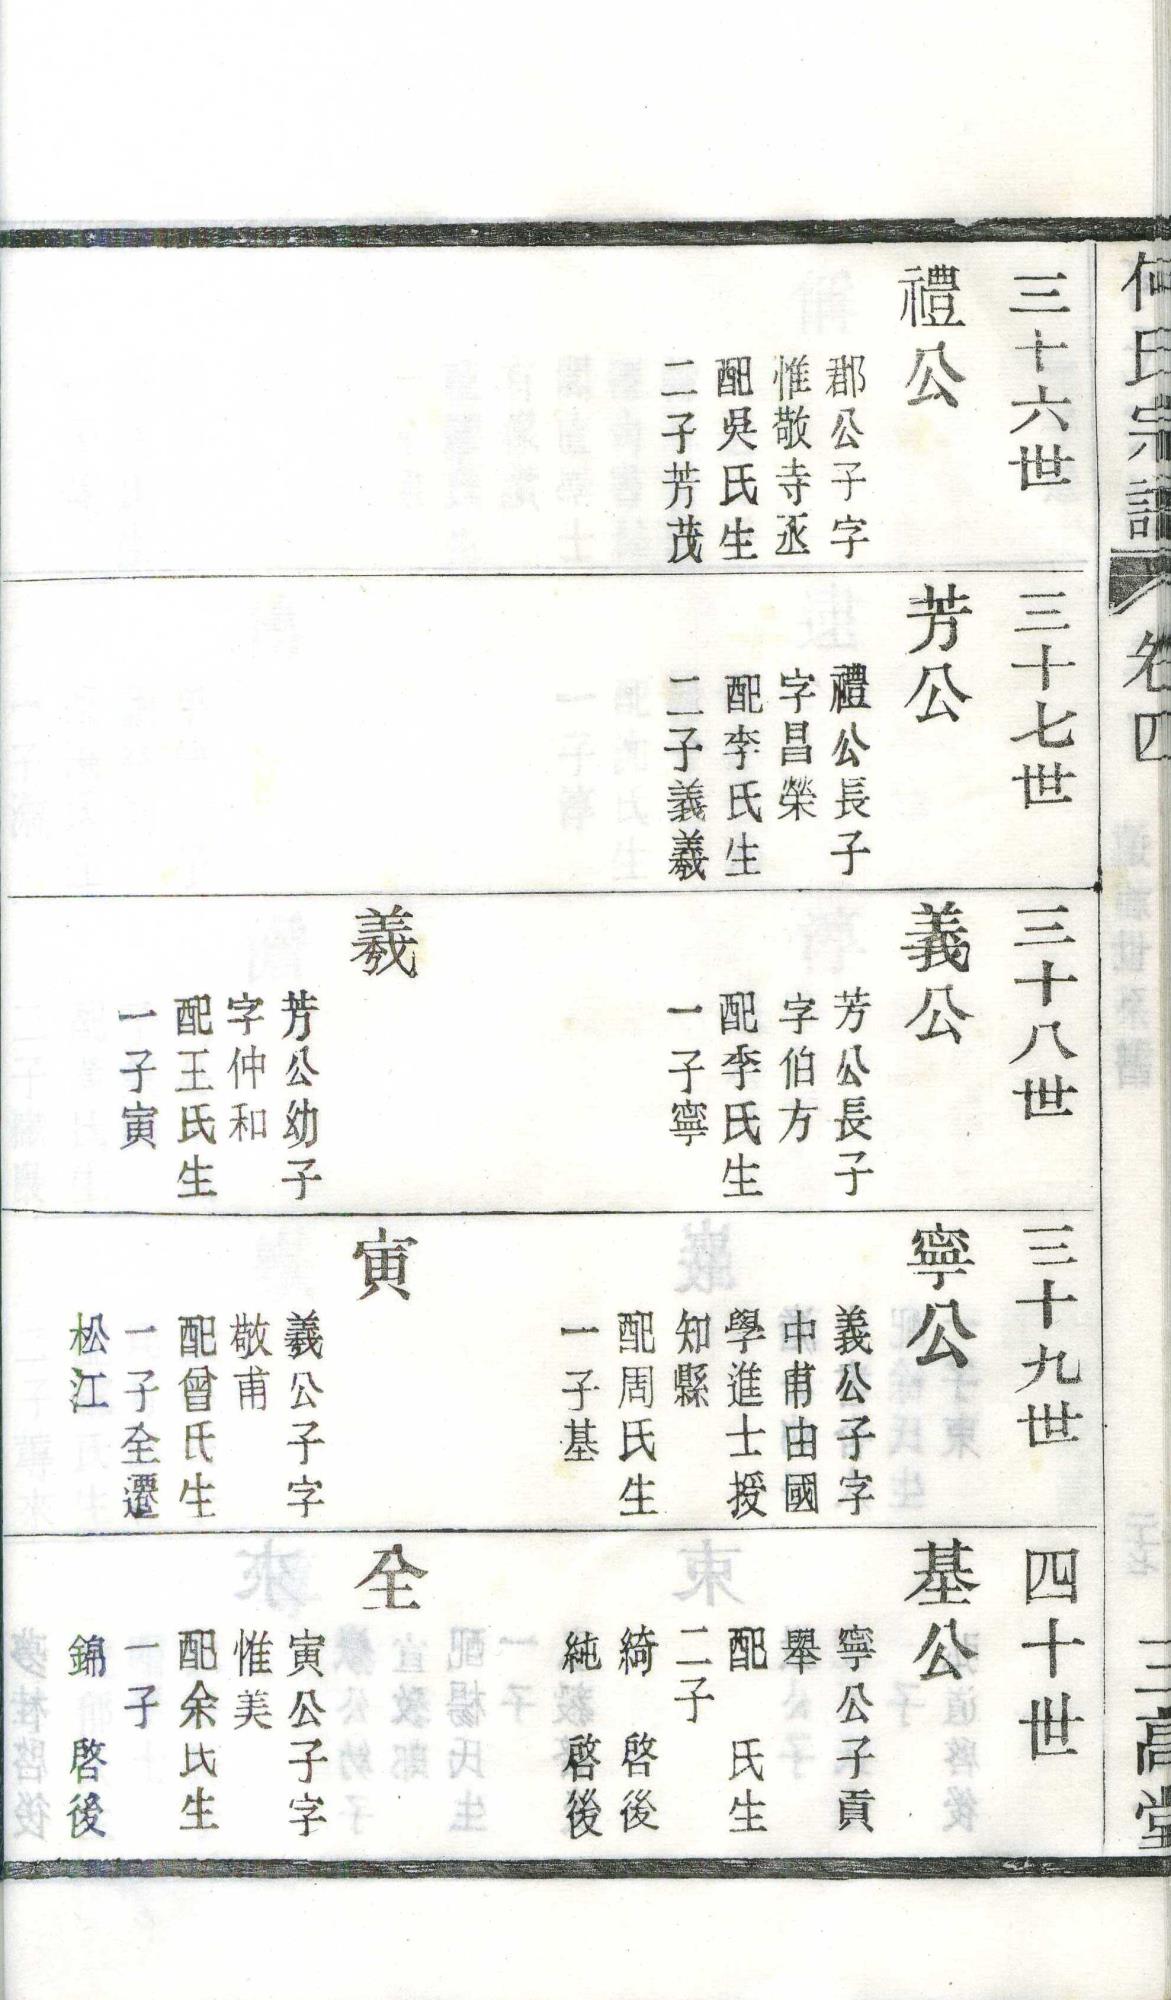 何氏宗譜
卷四
三高堂
三十六世
禮公
郡公子字
惟敬寺丞
配吳氏生
二子芳茂
三十七世
芳公
禮公長子
字昌榮
配李氏生
二子義羲
三十八世
義公
芳公長子
字伯方
配李氏生
一子寧
羲
芳公幼子
字仲和
配王氏生
一子寅
三十九世
寧公
義公子字
中甫由國
學進士授
知縣
配周氏生
一子基
寅
羲公子字
敬甫
配曾氏生
一子全遷
松江
四十世
基公
寧公子貢
舉
配 氏生
二子
綺 啓後
純 啓後
全
寅公子字
惟美
配余氏生
一子
錦 啓後